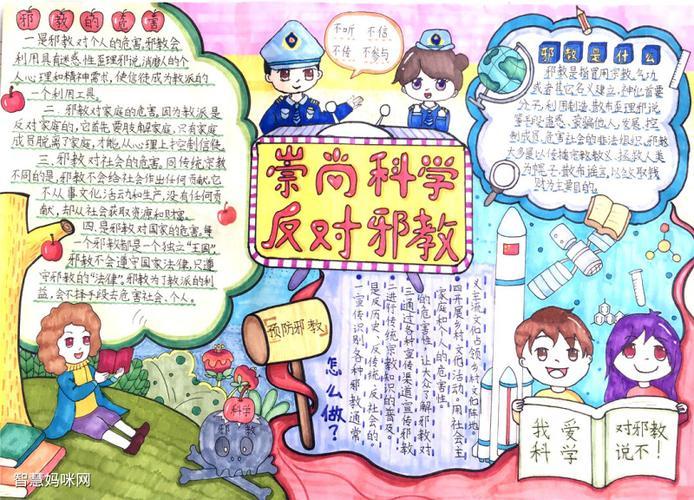 邪教的危害
一是邪教对个人的危害,邪教会
利用具有迷惑性歪理邪说,消磨人的个
人心理和精神需求,使信徒成为教派的
一个利用工具。
二、邪教对家庭的危害,因为教派是
反对家庭的,它首先要肢解家庭,只有家庭
成员脱离了家庭,才能从心理上控制信徒。
三、邪教对社会的危害,同传统宗教
不同的是,邪教不会给社会作出任何贡献,它
不从事文化活动和生产,没有任何贡
献,却从社会获取资源和财富。
四、是邪教对国家的危害,每
一个邪教都是一个独立"王国"
邪教不会遵守国家法律,只遵
守邪教的"法律",邪教为了教派的利
益,会不择手段去危害社会、个人。
不听 不信
不传 不参与
崇尚科学
反对邪教
邪教是什么
邪教是指冒用宗教、气功
或者其它名义建立,神化首要
分子,利用制造、散布歪理邪说
等手段蛊惑、蒙骗他人,发展、控
制成员,危害社会的非法组织。邪教
大多是以传播宗教教义、拯救人类
为幌子,散布谣言,以敛取钱
财为主要目的。
预防邪教
怎么做?
一宣传识别各种邪教,通常
是反历史、反传统、反社会的
二进行传统宗教知识的普及。
三通过各种宣传渠道宣传邪教
的危害性,让大众了解邪教对
家庭和个人的危害性。
四开展乡村文化活动,用社会主
义主流文化占领乡村文化阵地。
科学
邪教
我爱
科学
对邪教
说不!
智慧妈咪网